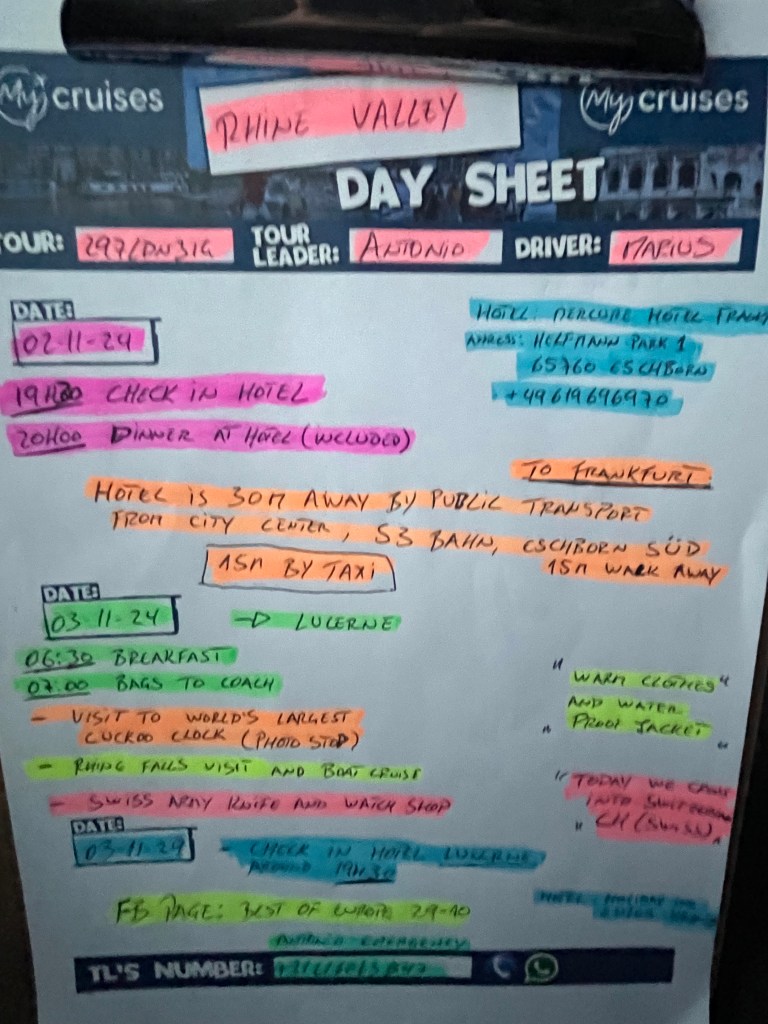 My cruises
RHINE VALLEY
My cruises
DAY SHEET
TOUR: 297/DN31G TOUR LEADER: ANTONIO DRIVER: MARIUS
DATE:
02-11-24
HOTEL: MERCURE HOTEL
ADDRESS: HELFMANN PARK 1
65760 ESCHBORN
+49619696970
19H00 CHECK IN HOTEL
20H00 DINNER AT HOTEL (INCLUDED)
TO FRANKFURT
HOTEL IS 30M AWAY BY PUBLIC TRANSPORT
FROM CITY CENTER, S3 BAHN, ESCHBORN SÜD
15M WALK AWAY
15M BY TAXI
DATE:
03-11-24
→ LUCERNE
06:30 BREAKFAST
07:00 BAGS TO COACH
"WARM CLOTHES"
AND WATER
"PROOF JACKET"
- VISIT TO WORLD'S LARGEST
CUCKOO CLOCK (PHOTO STOP)
- RHINE FALLS VISIT AND BOAT CRUISE
- SWISS ARMY KNIFE AND WATCH SHOP
"TODAY WE
INTO
" CH (SWISS)"
DATE:
03-11-24
- CHECK IN HOTEL LUCERNE
AROUND 19H30
FB PAGE: BEST OF EUROPE 29-10
HOTEL: HOLIDAY INN
EMERGENCY
TL'S NUMBER: